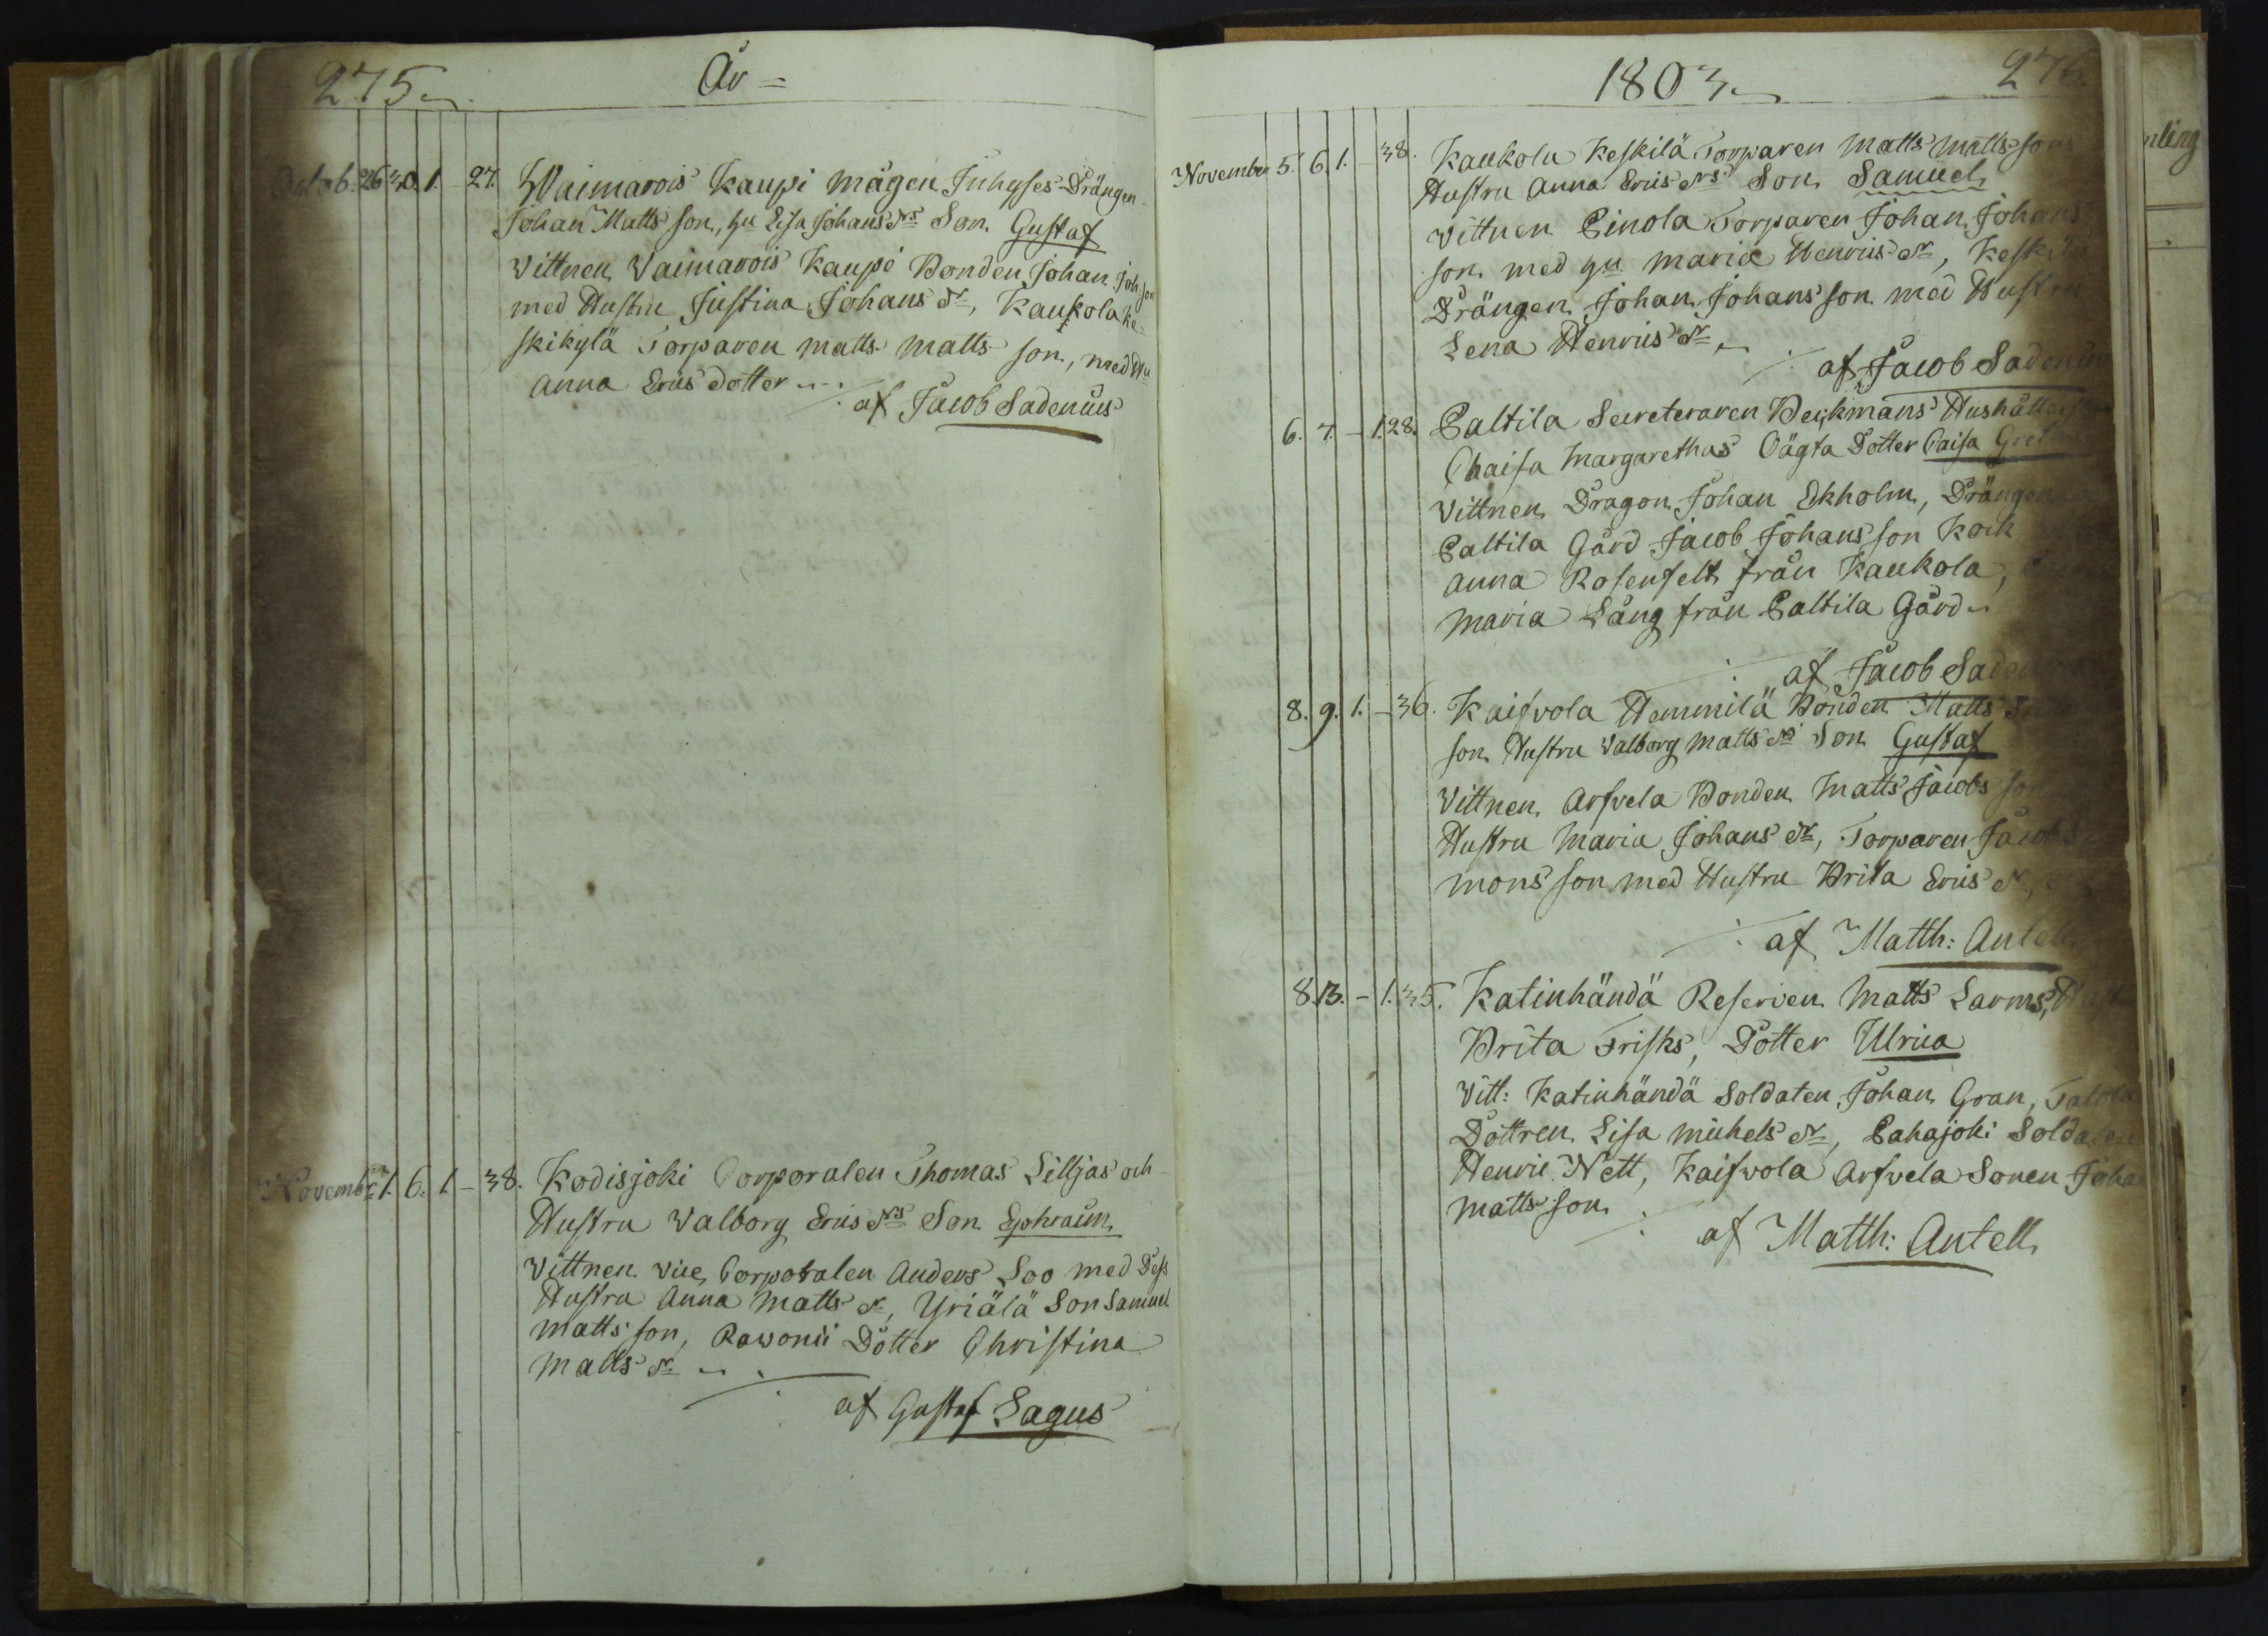 275.
År =
Octob. 26 30. 1. - 27. Waimarois Kaupi mågen Juhyses Drängen
Johan Matts son, hu Lisa Johans drs Son Gustaf
Vittnen Vaimarois Kaupi Bonden Johan Joh son
med Hustru Justina Johans dr, Kaukola Ke=
skikylä Torparen Matts Matts son, med Hu
Anna Erics dotter
af Jacob Sadenius
Novembr 1. 6. 1. - 38. Kodisjoki Corporalen Thomas Lilljas och
Hustru Valborg Erics drs Son Ephraim
Vittnen Vice Corporalen Anders Soo med Dess
Hustru Anna Matts dr, Yriälä Son Samuel
Matts son, Rawonii Dotter Christina
Matts dr
af Gustaf Lagus
1803
276.
November 5. 6. 1. - 38. Kaukola Keskilä Torparen Matts Matts sons
Hustru Anna Erics drs Son Samuel
Vittnen Pinola Torparen Johan Johans
son med hu Maria Henrics dr, Keskilä
Drängen Johan Johans son med Hustru
Lena Henrics dr
af Jacob Sadenius
6. 7. - 1. 28. Paltila Secreteraren Beckmans Hushåller
Chaisa Margarethas Oägta Dotter Caisa Gret
Vittnen Dragon Johan Ekholm, Drängen
Paltila Gård Jacob Johans son Kock
Anna Rosenfelt från Kaukola,
Maria Lång från Paltila Gård
af Jacob Sadenius
8. 9. 1. - 36. Kaisvola Hemmilä Bonden Matts
son Hustru Valborg Matts drs Son Gustaf
Vittnen Arfvela Bonden Matts Jacobs son
Hustru Maria Johans dr, Torparen Jacob
mons son med Hustru Brita Erics dr,
af Matth: Antell
8. 13. - 1. 35. Katinhändä Reserven Matts Larms,
Brita Frisks, Dotter Ulrica
Vitt: Katinhändä Soldaten Johan Gran, Talola
Dottren Lisa Michels dr, Pahajoki Soldaten
Henric Nett, Kaisvola Arfvela Sonen Johan
Matts son
af Matth: Antell
nling